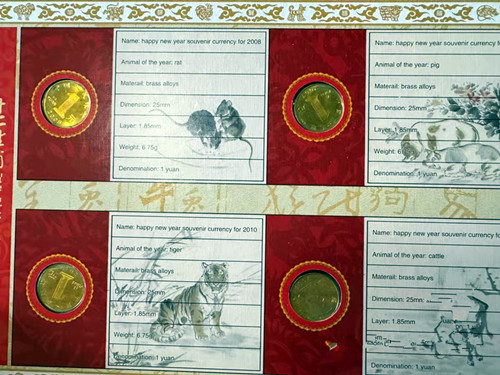 Name: happy new year souvenir currency for 2008
Animal of the year: rat
Materail: brass alloys
Dimension: 25mm
Layer: 1.85mm
Weight: 6.75g
Denomination: 1 yuan
Name: happy new year souvenir
Animal of the year: pig
Materail: brass alloys
Dimension: 25mm
Layer: 1.85mm
Weight:
Denomination: 1 yuan
Name: happy new year souvenir currency for 2010
Animal of the year: tiger
Materail: brass alloys
Dimension: 25mm
Layer: 1.85mm
Weight: 6.75g
Denomination: 1 yuan
Name: happy new year souvenir currency
Animal of the year: cattle
Materail: brass alloys
Dimension: 25mm
Layer: 1.85mm
Weight: 6.75g
Denomination: 1 yuan